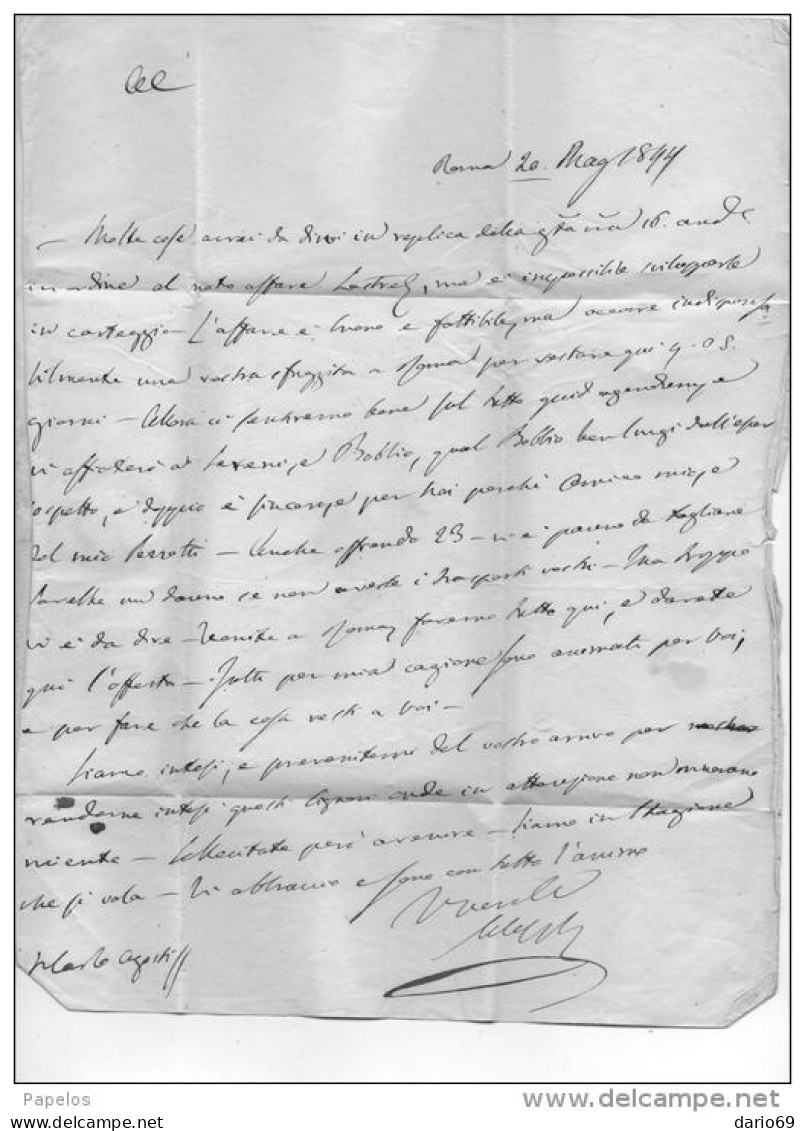 Roma 20. Mag 1844
— Molte cose avrei da dirvi in replica della 16. and.
in ordine al noto affare, ma è impossibile svilupparle
in carteggio — L'affare è buono e fattibile, ma occorre indispensa
bilmente una vostra sfuggita a Roma per restare qui 4. o 5.
giorni — Allora ci sentiremo bene sul tutto quid agendum, e
vi affiaterò a e Bobbio, qual Bobbio ben lungi dall'esser
sospetto, è doppio è sincero per noi perchè Amico mio, e
del mio Perretti — Anche offrendo 23 — vi è panno da tagliare
Sarebbe un danno se non aveste i trasporti vostri — Ma troppo
vi è da dire — Venite a Roma, faremo tutto qui, e darete
qui l'offerta — Tutti per mia cagione sono animati per voi,
e per fare che la cosa resti a voi —
Siamo intesi, e prevenitemi del vostro arrivo per
renderne intesi questi Signori onde in attenzione non
niente — Sollecitate però a venire — Siamo in Stagione
che si vola — Vi abbraccio e sono con tutto l'animo
Agosti
Papelos
delcampe.net
dario69